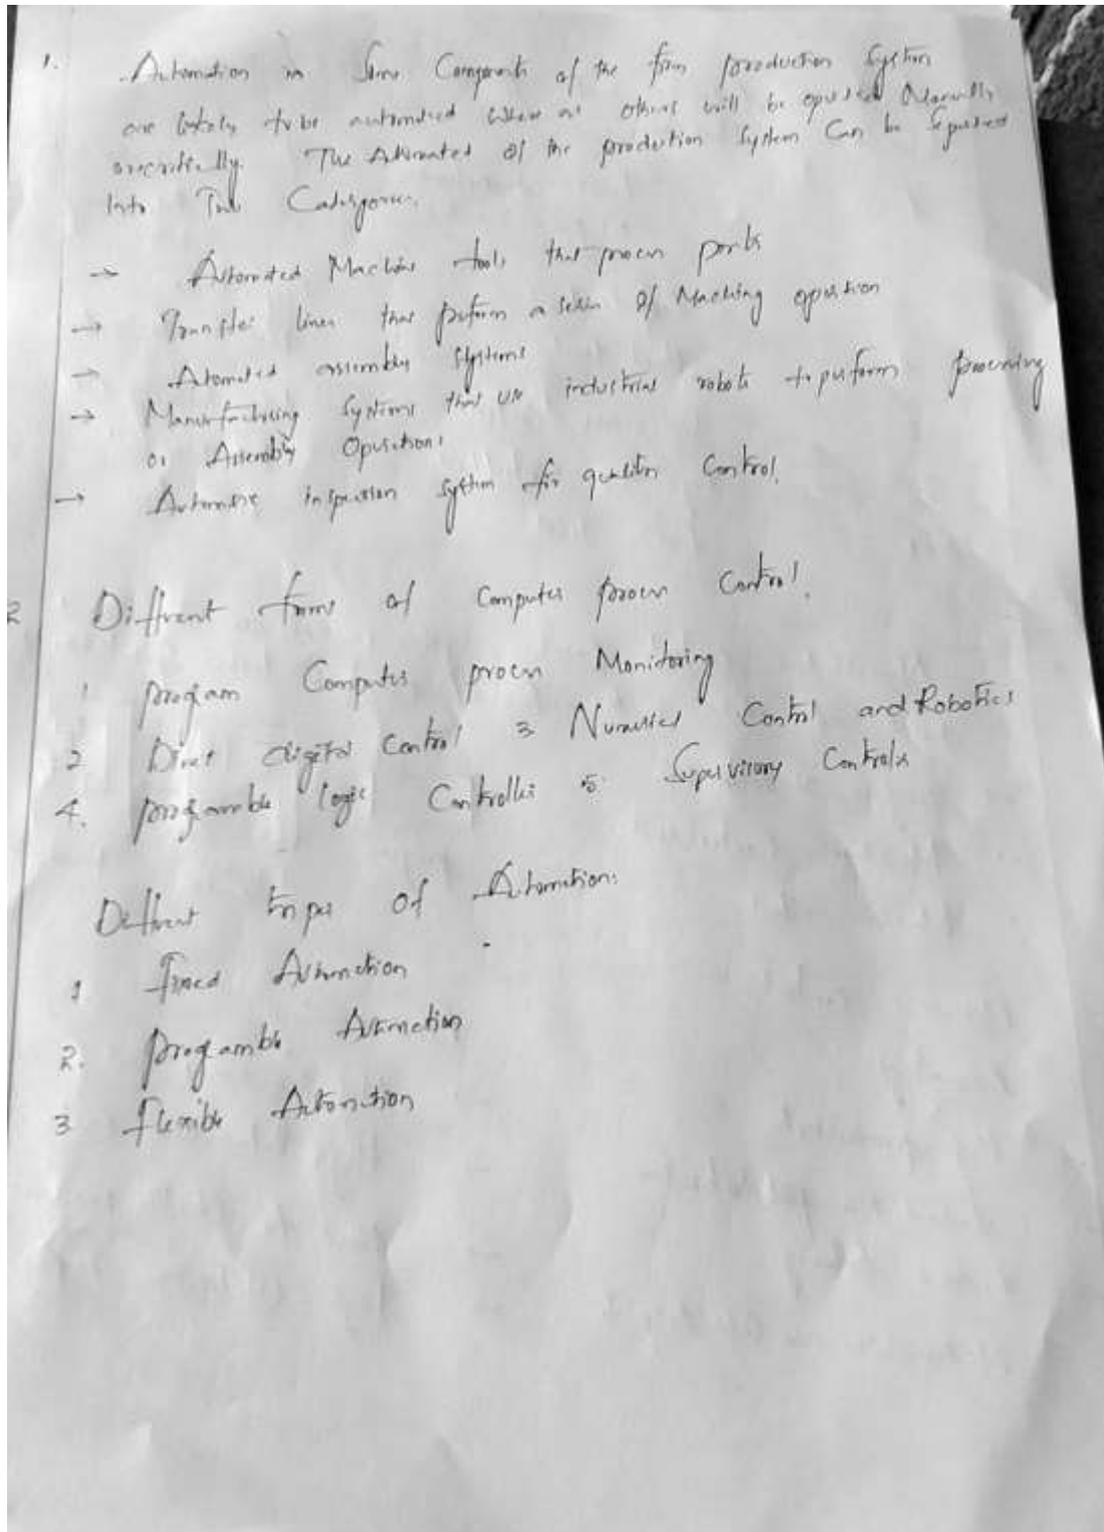 1. Automation in Some Components of the firm production System
are likely to be automated where as others will be operated Manually
or critically. The Automated of the production System Can be Seperated
Into Two Catogories.
→ Automated Machine tools that process parts
→ Transfer lines that perform a series of Maching operation
→ Atomated assembly Systems
→ Manufacturing Systems that use industrial robots to perform processing
or Assembly Operations
→ Automatic inspection System for quality Control.
2 Diffrent forms of Computer process Control.
1 program Computer process Monitoring
2 Direct digital Control 3 Numerical Control and Robotics
4. programble logic Controller 5 Supervisory Controls
Diffrent types of Automations
1 fixed Automation
2. programble Automation
3 flexible Automation